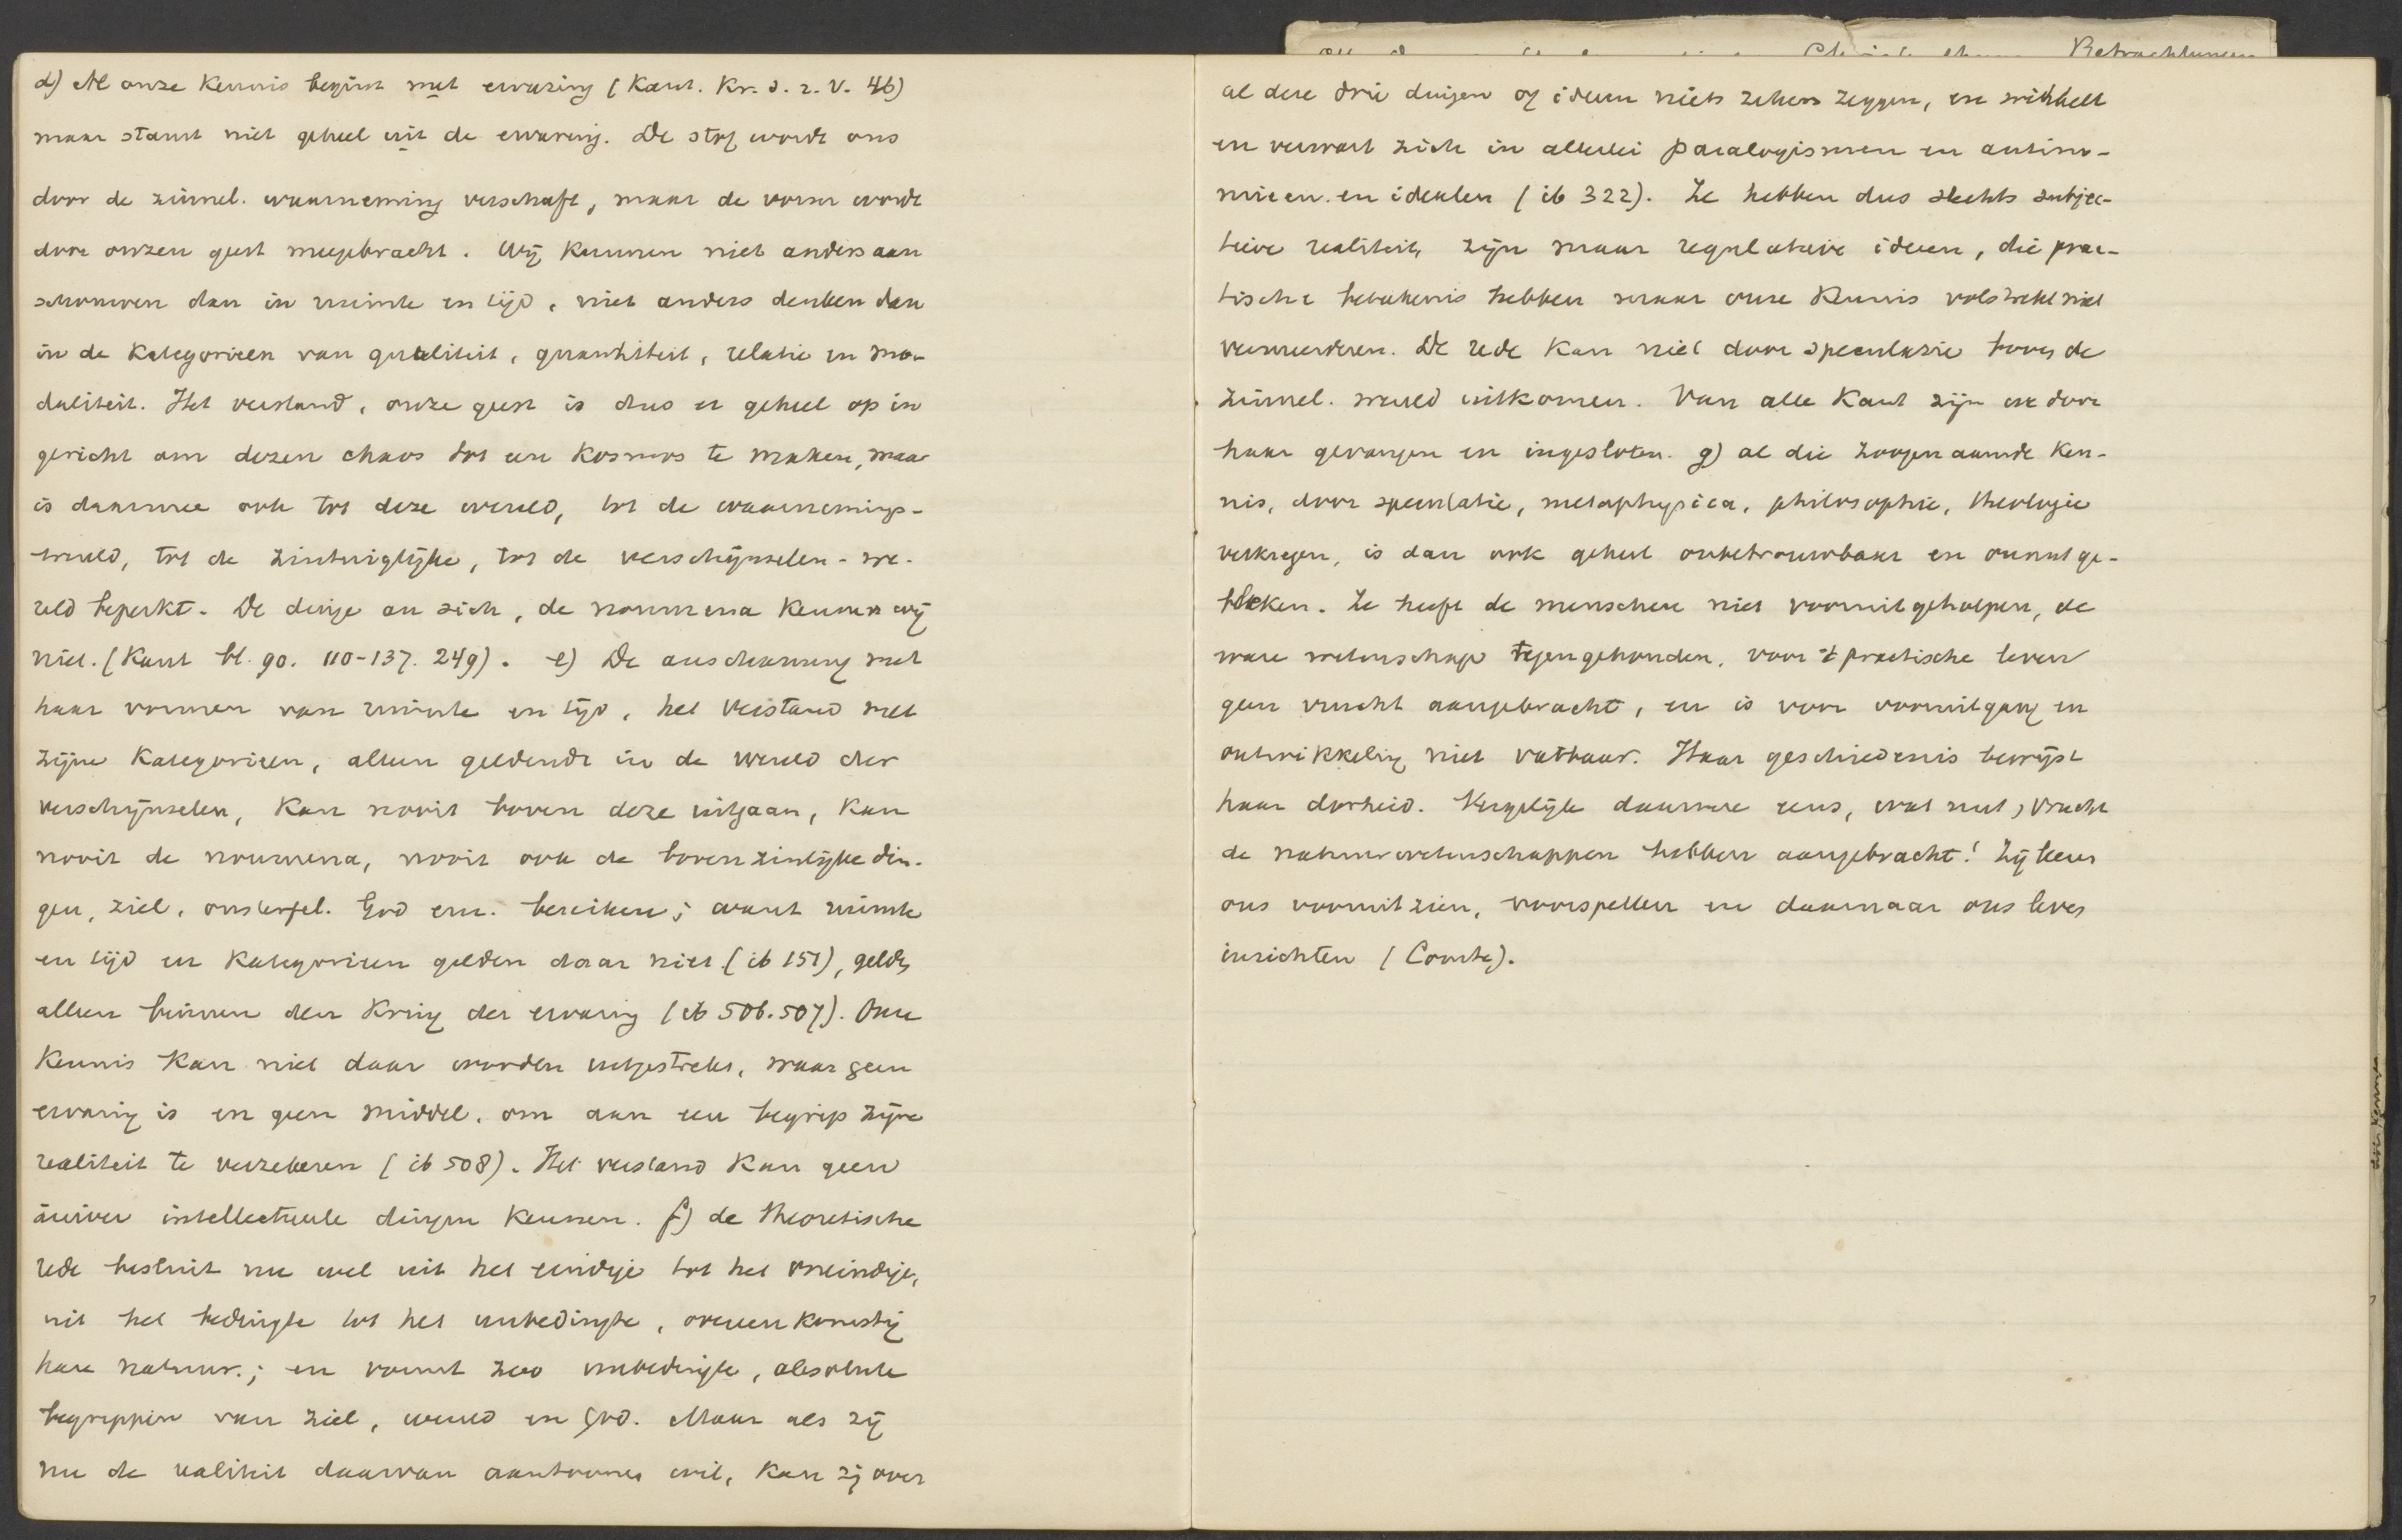 Betrachtungen
d) Al onze Kennis begint met ervaring (Kant. Kr. d. r. V. 46)
maar stamt niet geheel uit de ervaring. De stof wordt ons
door de zinnel. waarneming verschaft, maar de vorm wordt
door onzen geest meegebracht. Wij kunnen niet anders aan
schouwen dan in ruimte en tijd, niet anders denken dan
in de Kategorieen van qualiteit, quantiteit, relatie en mo-
daliteit. Het verstand, onze geest is dus er geheel op in
gericht om dezen chaos tot een Kosmos te maken, maar
is daarmee ook tot deze wereld, tot de waarnemings-
wereld, tot de zintuiglijke, tot de verschijnselen-we-
reld beperkt. De dinge an sich, de noumena kennen wij
niet. (Kant bl. 90. 110-137. 249). e) De anschauung met
haar vormen van ruimte en tijd, het Verstand met
zijne Kategorieen, alleen geldende in de wereld der
verschijnselen, Kan nooit boven deze uitgaan, Kan
nooit de noumena, nooit ook de bovenzinlijke din-
gen, ziel, onsterfel. God enz. bereiken; want ruimte
en tijd en Kategorieen gelden daar niet (ib 151), gelden
alleen binnen den Kring der ervaring (ib 506.507). Onze
Kennis Kan niet daar worden uitgestrekt, waar geen
ervaring is en geen middel, om aan een begrip zijne
realiteit te verzekeren (ib 508). Het verstand Kan geen
zuiver intellectueele dingen Kennen. f) de theoretische
rede besluit nu wel uit het eindige tot het oneindige,
uit het bedingte tot het unbedingte, overeenkomstig
hare natuur.; en vormt zoo unbedingte, absolute
begrippen van ziel, wereld en God. Maar als zij
nu de realiteit daarvan aantoonen wil, Kan zij over
al deze drie dingen of ideeen niets zekers zeggen, en wikkelt
en verwart zich in allerlei paralogismen en antino-
mieen. en idealen (ib 322). Ze hebben dus slechts subjec-
tieve realiteit, zijn maar regulatieve ideeen, die prac-
tische beteekenis hebben maar onze Kennis volstrekt niet
vermeerderen. De rede Kan niet door speculazie boven de
zinnel. wereld uitkomen. Van alle Kant zijn we door
haar gevangen en ingesloten. g) al die zoogenaamde Ken-
nis, door speculatie, metaphysica, philosophie, theologie
verkregen, is dan ook geheel onbetrouwbaar en onnut ge-
bleken. Ze heeft de menschen niet vooruitgeholpen, de
ware wetenschap tegengehouden, voor 't practische leven
geen vrucht aangebracht, en is voor vooruitgang en
ontwikkeling niet vatbaar. Haar geschiedenis bewijst
haar dorheid. Vergelijk daarmee eens, wat nut, vrucht
de natuurwetenschappen hebben aangebracht! Zij leeren
ons vooruitzien, voorspellen en daarnaar ons leven
inrichten (Comte).